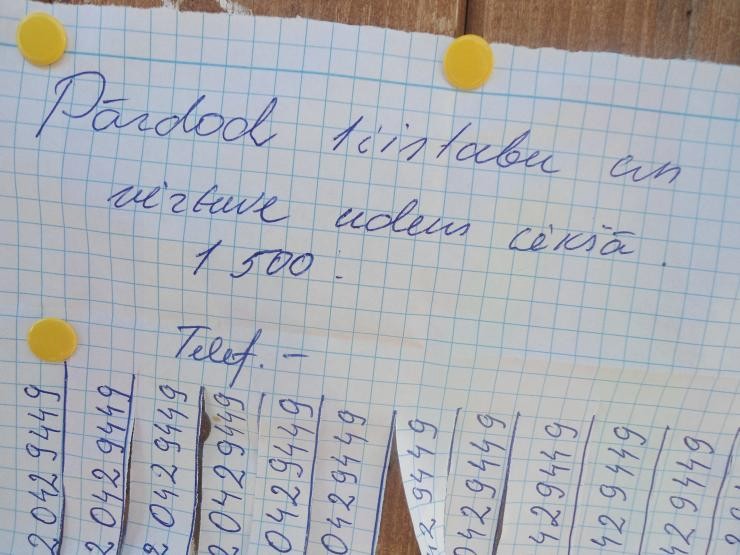 Pārdod 1 istabu un
virtuve udens iekšā.
1 500.
Telef. –
20429449
20429449
20429449
20429449
0429449
0429449
429449
0429449
429449
429449
29449